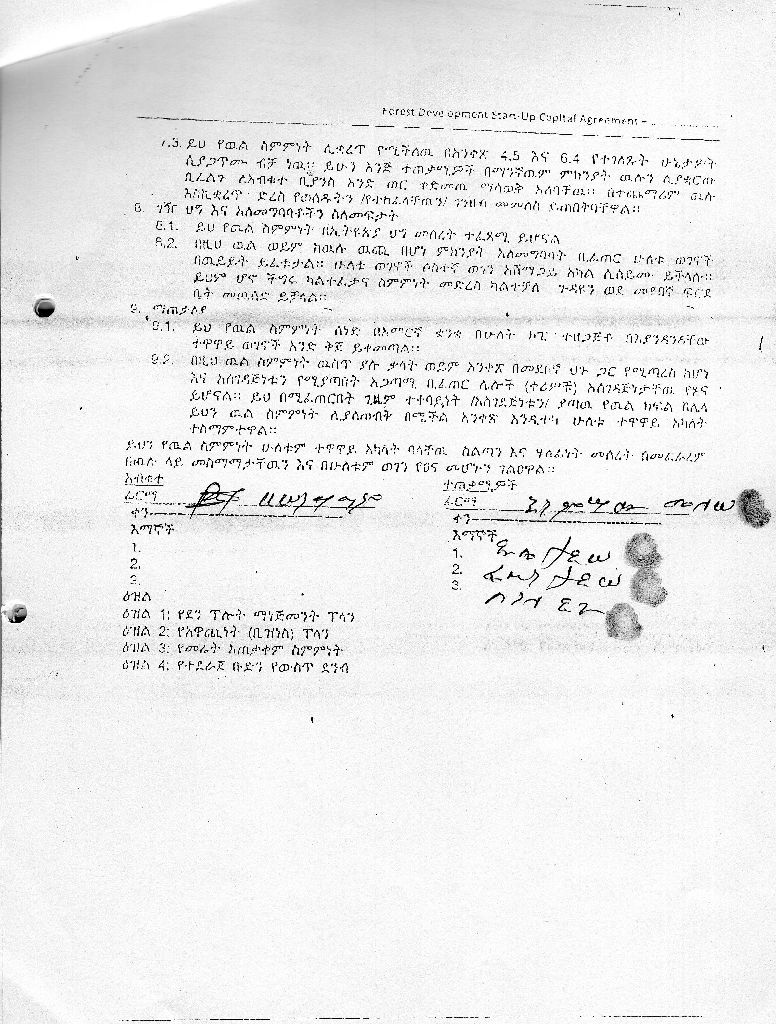 Forest Development Start-Up Capital Agreement –
7.3. ይህ የዉል ስምምነት ሊቋረጥ የሚችለዉ በአንቀጽ 4.5 እና 6.4 የተገለጹት ሁኔታዎች
ሲያጋጥሙ ብቻ ነዉ፡፡ ይሁን እንጅ ተጠቃሚዎች በማንኛዉም ምክንያት ዉሉን ሊያቋርጡ
ቢፈልጉ ለአብቁተ ቢያንስ አንድ ወር ቀድመዉ ማሳወቅ አለባቸዉ፡፡ በተጨማሪም ዉሉ
እስኪቋረጥ ድረስ የወሰዱትን /የተከፈላቸዉን/ ገንዘብ መመለስ ይጠበቅባቸዋል፡፡
8. ገዥ ህግ እና አለመግባባቶችን ስለመፍታት
8.1. ይህ የዉል ስምምነት በኢትዩጵያ ህግ መሰረት ተፈጻሚ ይሆናል
8.2. በዚህ ዉል ወይም ከዉሉ ዉጪ በሆነ ምክንያት አለመግባባት ቢፈጠር ሁለቱ ወገኖች
በዉይይት ይፈቱታል፡፡ ሁለቱ ወገኖች ሶስተኛ ወገን አሸማጋይ አካል ሊሰይሙ ይችላሉ፡፡
ይህም ሆኖ ችግሩ ካልተፈታና ስምምነት መድረስ ካልተቻለ ጉዳዩን ወደ መደበኛ ፍርድ
ቤት መዉሰድ ይቻላል፡፡
9. ማጠቃለያ
9.1. ይህ የዉል ስምምነት ሰነድ በአማርኛ ቋንቋ በሁለት ኮፒ ተዘጋጅቶ በእያንዳንዳቸው
ተዋዋይ ወገኖች አንድ ቅጅ ይቀመጣል፡፡
9.2. በዚህ ዉል ስምምነት ዉስጥ ያሉ ቃላት ወይም አንቀጽ በመደበኛ ህጉ ጋር የሚጣረስ ከሆነ
እና አስገዳጅነቱን የሚያጣበት አጋጣሚ ቢፈጠር ሌሎች (ቀሪዎች) አስገዳጅነታቸዉ የጸና
ይሆናል፡፡ ይህ በሚፈጠርበት ጊዜም ተቀባይነት /አስገዳጅነቱን/ ያጣዉ የዉል ክፍል ሌላ
ይህን ዉል ስምምነት ሊያጠብቅ በሚችል አንቀጽ እንዲተካ ሁለቱ ተዋዋይ አካላት
ተስማምተዋል፡፡
ይህን የዉል ስምምነት ሁለቱም ተዋዋይ አካላት ባላቸዉ ስልጣን እና ሃላፊነት መሰረት በመፈራረም
በዉሉ ላይ መስማማታቸዉን እና በሁለቱም ወገን የጸና መሆኑን ገልፀዋል፡፡
አብቁተ
ፊርማ
ቀን
እማኞች
1.
2.
3.
ተጠቃሚዎች
ፊርማ
ቀን
እማኞች
1.
2.
3.
ዕዝል
ዕዝል 1: የደን ፕሎት ማነጅመንት ፕላን
ዕዝል 2: የአዋጪነት (ቢዝነስ) ፕላን
ዕዝል 3: የመሬት አጠቃቀም ስምምነት
ዕዝል 4: የተደራጀ ቡድን የውስጥ ደንብ